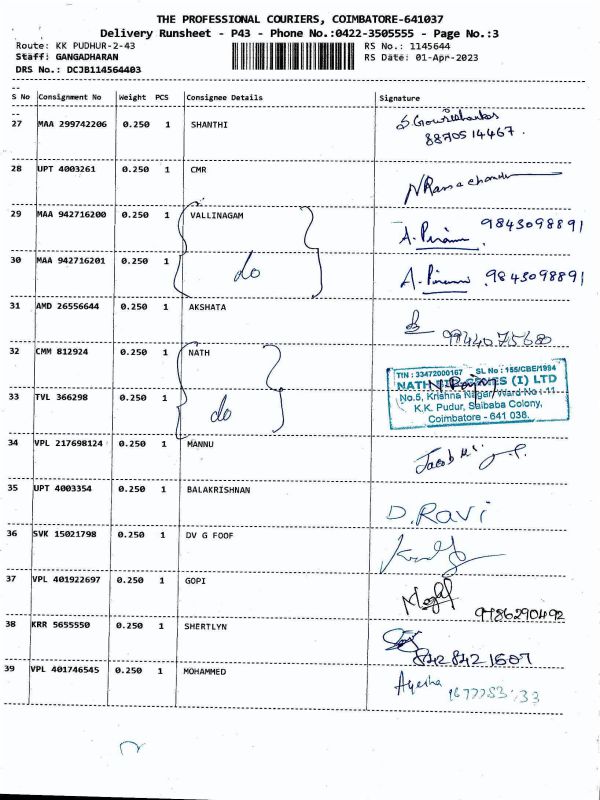 THE PROFESSIONAL COURIERS, COIMBATORE-641037
Delivery Runsheet - P43 - Phone No.:0422-3505555 - Page No.:3
Route: KK PUDHUR-2-43 RS No.: 1145644
Staff: GANGADHARAN RS Date: 01-Apr-2023
DRS No.: DCJB114564403
S No Consignment No Weight PCS Consignee Details Signature
27 MAA 299742206 0.250 1 SHANTHI
8870514467.
28 UPT 4003261 0.250 1 CMR N Ramachander
29 MAA 942716200 0.250 1 VALLINAGAM A. 9843098891
30 MAA 942716201 0.250 1 do A. 9843098891
31 AMD 26556644 0.250 1 AKSHATA
9944075680
32 CMM 812924 0.250 1 NATH TIN : 33472000167 SL No : 155/CBE/1994
NATH (I) LTD
33 TVL 366298 0.250 1 do No.5, Krishna Nagar, Ward No : 11
K.K. Pudur, Saibaba Colony,
Coimbatore - 641 038.
34 VPL 217698124 0.250 1 MANNU Jacob
35 UPT 4003354 0.250 1 BALAKRISHNAN D. Ravi
36 SVK 15021798 0.250 1 DV G FOOF
37 VPL 401922697 0.250 1 GOPI
9786290492
38 KRR 5655550 0.250 1 SHERTLYN
8428421607
39 VPL 401746545 0.250 1 MOHAMMED Ayesha